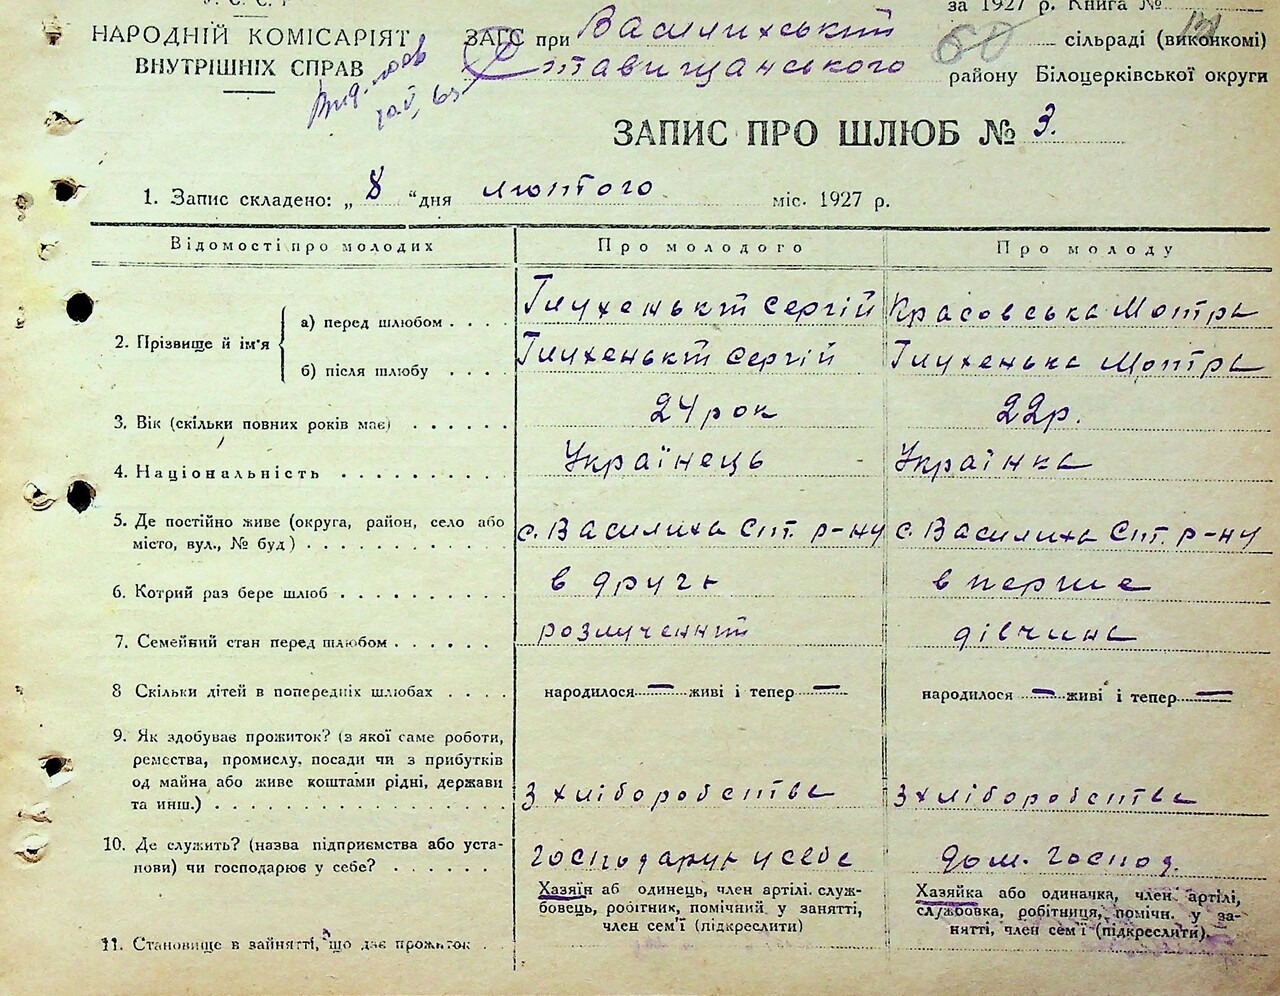 У.С.С.Р
за 1927 р. Книга №
НАРОДНІЙ КОМІСАРІЯТ
ВНУТРІШНІХ СПРАВ
ЗАГС при Василихський 60 сільраді (виконкомі)
Ставищанського району Білоцерківської округи
ЗАПИС ПРО ШЛЮБ № 3.
1. Запис складено: „ 8 “ дня лютого міс. 1927 р.
Відомості про молодих Про молодого Про молоду
2. Прізвище й ім'я
а) перед шлюбом . . . . Глухенький Сергій Красовська Мотря
б) після шлюбу . . . . Глухенький Сергій Глухенька Мотря
3. Вік (скільки повних років має) . . . . . . 24 рок 22 р.
4. Національність . . . . . . . . . . Українець Українка
5. Де постійно живе (округа, район, село або
місто, вул., № буд) . . . . . . . . . . . с. Василиха Ст. р-ну с. Василиха Ст. р-ну
6. Котрий раз бере шлюб . . . . . . . . . в друге в перше
7. Семейний стан перед шлюбом . . . . . . розлучений дівчина
8 Скільки дітей в попередніх шлюбах . . . . народилося — живі і тепер — народилося — живі і тепер —
9. Як здобуває прожиток? (з якої саме роботи,
ремества, промислу, посади чи з прибутків
од майна або живе коштами рідні, держави
та инш.) . . . . . . . . . . . . . . . . . З хліборобства З хліборобства
10. Де служить? (назва підприємства або уста-
нови) чи господарює у себе? . . . . . . господарює у себе дом. господ.
Хазяїн аб одинець, член артілі. служ-
бовець, робітник, помічний у занятті,
член сем'ї (підкреслити)
Хазяйка або одиначка, член артілі,
службовка, робітниця, помічн. у за-
нятті, член сем'ї (підкреслити).
11. Становище в зайнятті, що дає прожиток . .